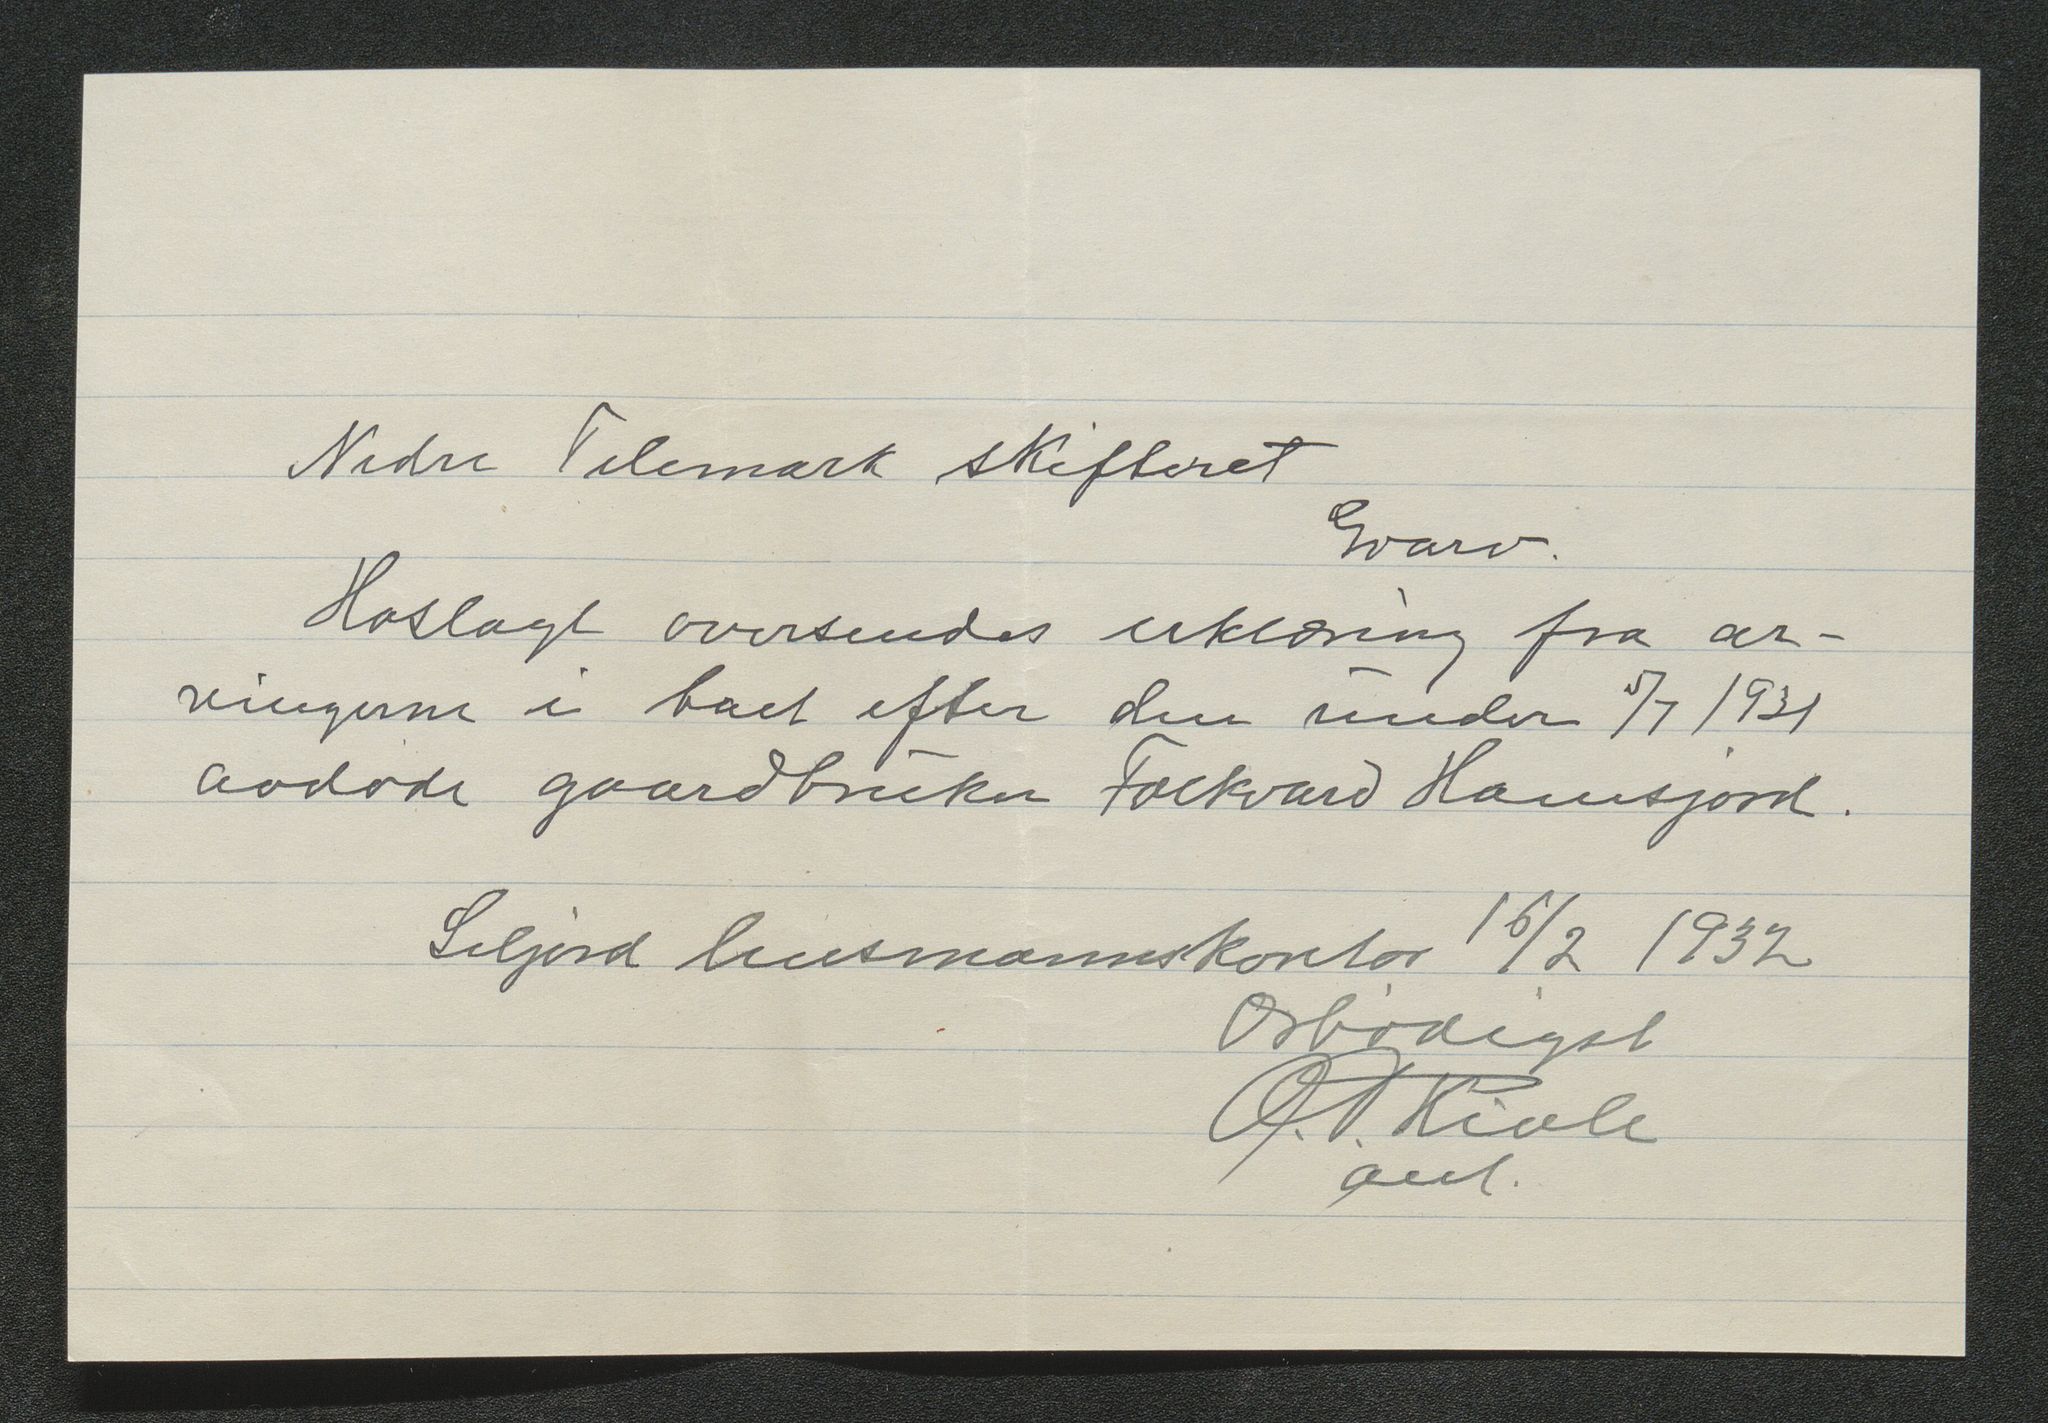 Nedre Telemark skifteret
Gvarv.
Hoslagt oversendes erklæring fra ar-
vingerne i boet efter den under 5/7 1931
avdøde gaardbruker Folkvard Hamsjord.
Seljord lensmannskontor 15/2 1932
Ørbødigst
O. T. Kivle
aut.